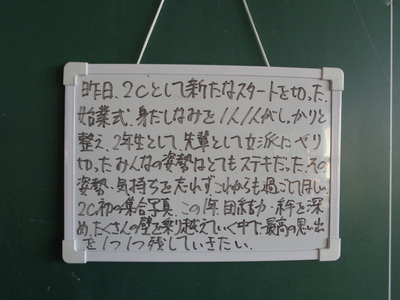 昨日、2Cとして新たなスタートを切った。
始業式、身だしなみを1人1人がしっかりと
整え、2年生として、先輩として立派にふり
切ったみんなの姿勢はとてもステキだった。その
姿勢・気持ちを忘れずこれからも過ごしてほしい。
2C初の集合写真。この1年、団結力・絆を深
め、たくさんの壁を乗り越えていく中で、最高の思い出
を1つ1つ残していきたい。